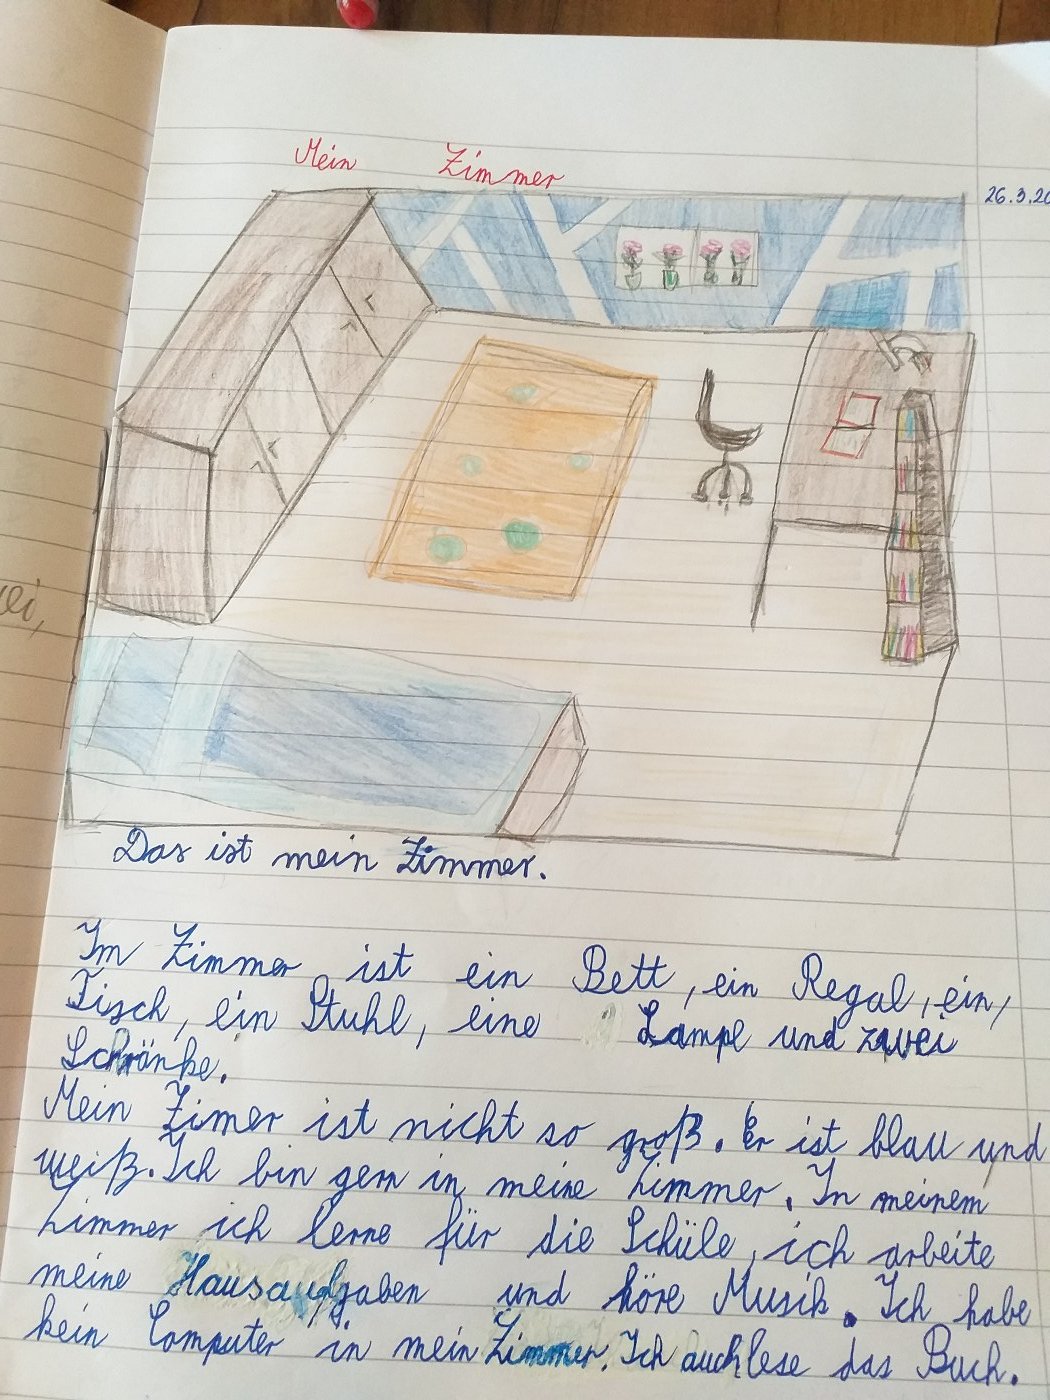 Mein Zimmer
26.3.20
Das ist mein Zimmer.
Im Zimmer ist ein Bett, ein Regal, ein,
Tisch, ein Stuhl, eine Lampe und zwei
Schränke.
Mein Zimer ist nicht so groß. Er ist blau und
weiß. Ich bin gern in meine Zimmer. In meinem
Zimmer ich lerne für die Schüle, ich arbeite
meine Hausaufgaben und höre Musik. Ich habe
kein Computer in mein Zimmer. Ich auch lese das Buch.